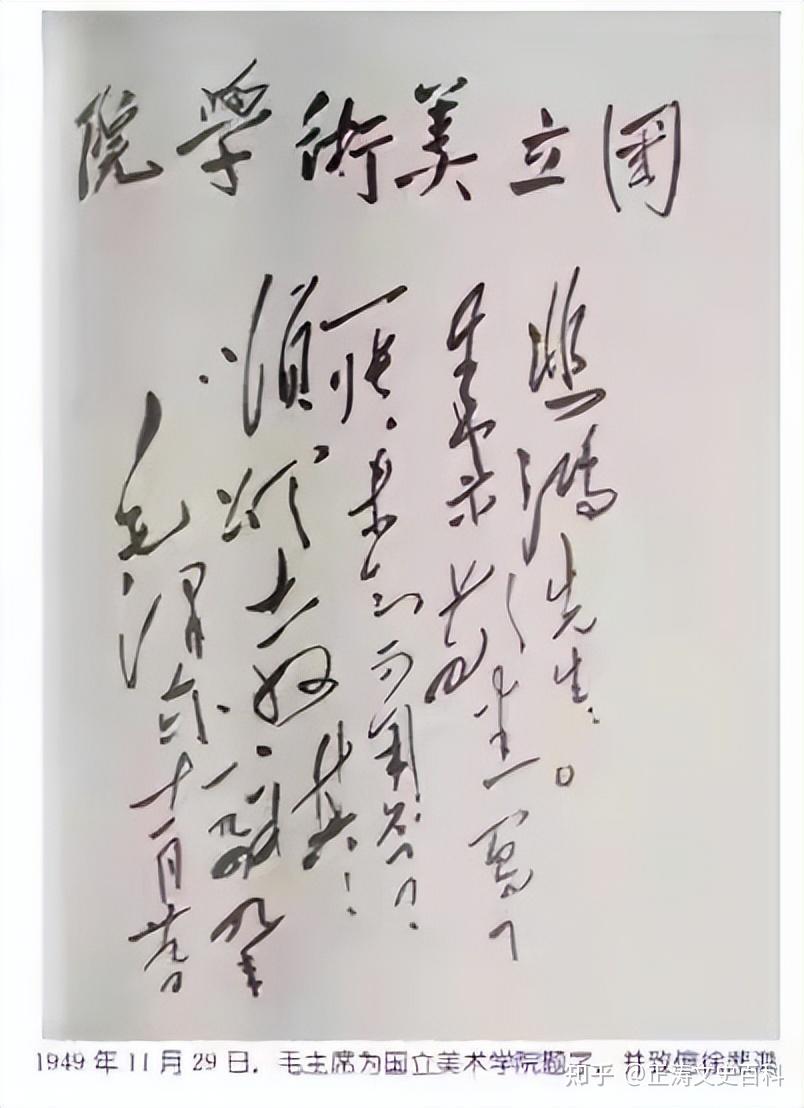 國立美術學院
悲鴻先生：
來示 寫了
一張，未知可用否？
順頌
毛澤東
十一月廿九日
1949年11月29日，毛主席为国立美术学院题了，并致信徐悲鸿
知乎 @正涛文史百科